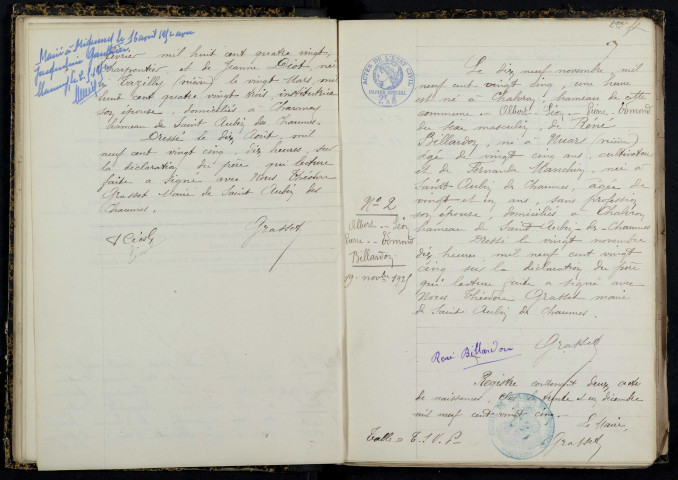 Marié à le 16 avril 1952 avec
février mil huit cent quatre vingt
charpentier et de Jeanne née
à (nièvre) le vingt Mars mil
huit cent quatre vingt trois, institutrice
son épouse, domiciliés à Charency
hameau de Saint Aubin des Chaumes.
Dressé le dix Août, mil
neuf cent vingt cinq, dix heures, sur
la déclaration du père qui lecture
faite a signé avec Nous Théodore
Grasset Maire de Saint Aubin des
Chaumes.
Grasset
ACTES DE L'ETAT CIVIL
PAPIER SPECIAL
Nº 2
Albert - Léon
Pierre - Edmond
Bellardoz
19 novbre 1925
Le dix neuf novembre, mil
neuf cent vingt cinq, une heure
est né à Chalvron, hameau de cette
commune Albert - Léon - Pierre - Edmond
du sexe masculin, de René
Billardon, né à Nuars (nièvre)
âgé de vingt cinq ans, cultivateur
et de Fernande née à
Saint Aubin des Chaumes, âgée de
vingt et un ans, sans profession
son épouse, domiciliés à Chalvron
hameau de Saint Aubin des Chaumes
Dressé le vingt novembre
dix heures, mil neuf cent vingt
cinq sur la déclaration du père
qui lecture faite a signé avec
Nous Théodore Grasset maire
de Saint Aubin des Chaumes.
René Billardon
Grasset
Registre contenant deux actes
de naissances, clos le trente et un décembre
mil neuf cent vingt cinq.
Le Maire,
Table = T.S.V.P.
Grasset